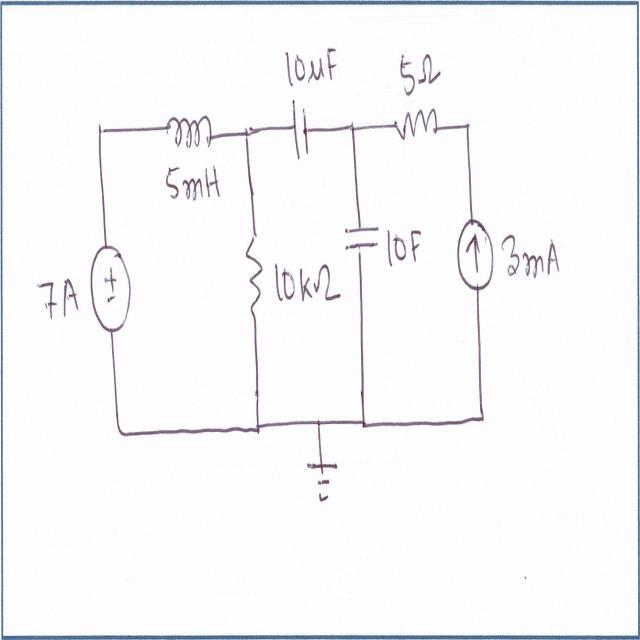 10μF
5Ω
5mH
7A
10kΩ
10F
3mA